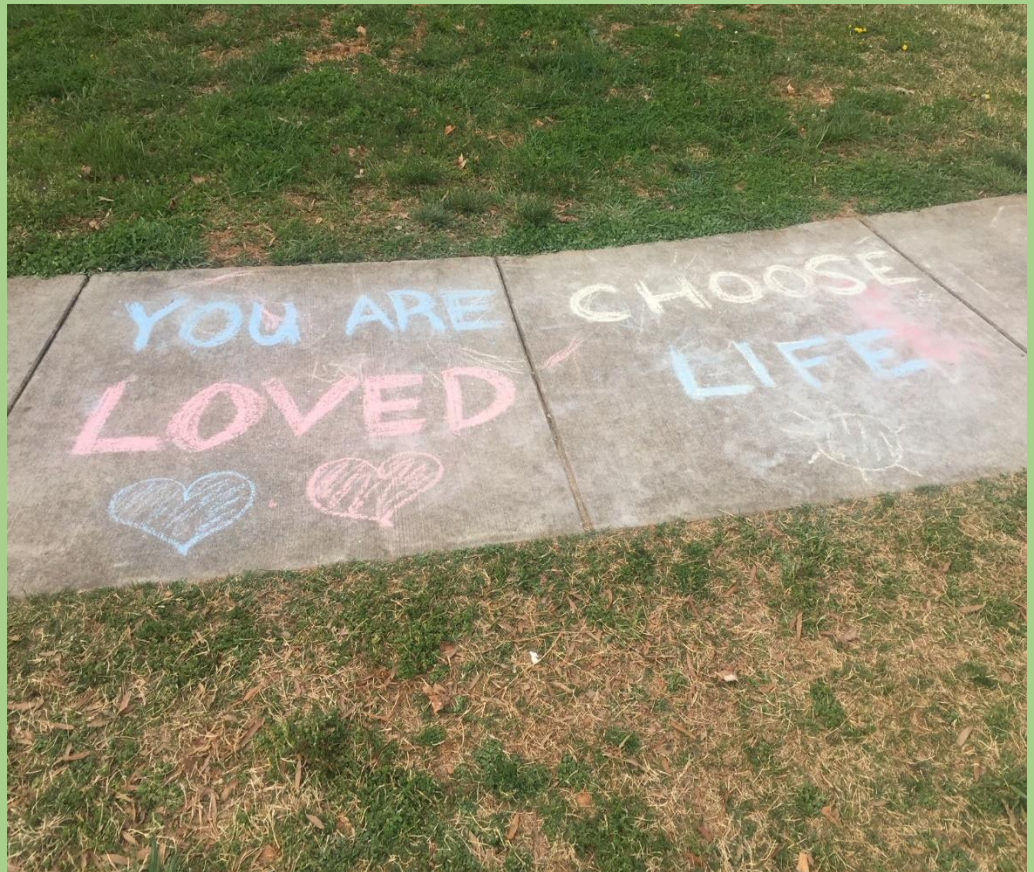 YOU ARE
LOVED
CHOOSE
LIFE